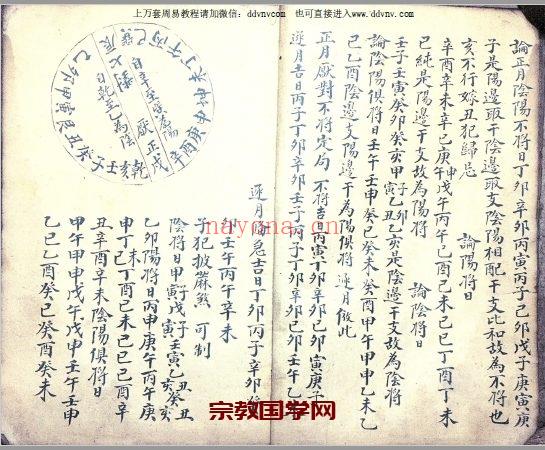 上万套周易教程请加微信：ddvnvcom 也可直接进入www.ddvnv.com
論正月陰陽不將日丁卯辛卯丙寅丙子己卯戊子庚寅庚
子是陽邊取干陰邊取支陰陽相配干支比和故為不將也
亥不行嫁丑犯歸忌
論陽將日
辛酉辛未辛巳庚申庚午戊申戊午丙午己酉己未己巳丁酉丁未
巳純是陽邊干支故為陽將
論陰將日
壬子壬寅癸卯癸亥甲寅甲子乙丑乙卯乙亥是陰邊干支故為陰將
論陰陽俱將日壬午壬申癸巳癸未癸酉甲午甲申乙未乙
巳乙酉陰邊支陽邊干為陽俱將逐月倣此
正月厭對不將定局
不將吉日丙寅丁卯辛卯己卯庚寅庚子
逐月吉日丙子丁卯辛卯壬子丙子丁卯辛卯己卯壬午乙
逐月偷急吉日丁卯丙子辛卯
卯壬午丙午辛未
子犯披蔴煞可制
陰將日甲寅甲子戊子壬寅乙丑乙亥癸丑癸亥
乙卯陽將日丙申庚午丙午庚
申丁未丁酉己未己巳己酉辛
丑辛酉辛未陰陽俱將日
甲午甲申戊午戊申壬午壬申
乙巳乙酉癸巳癸酉癸未
nayona.cn
宗教国学网